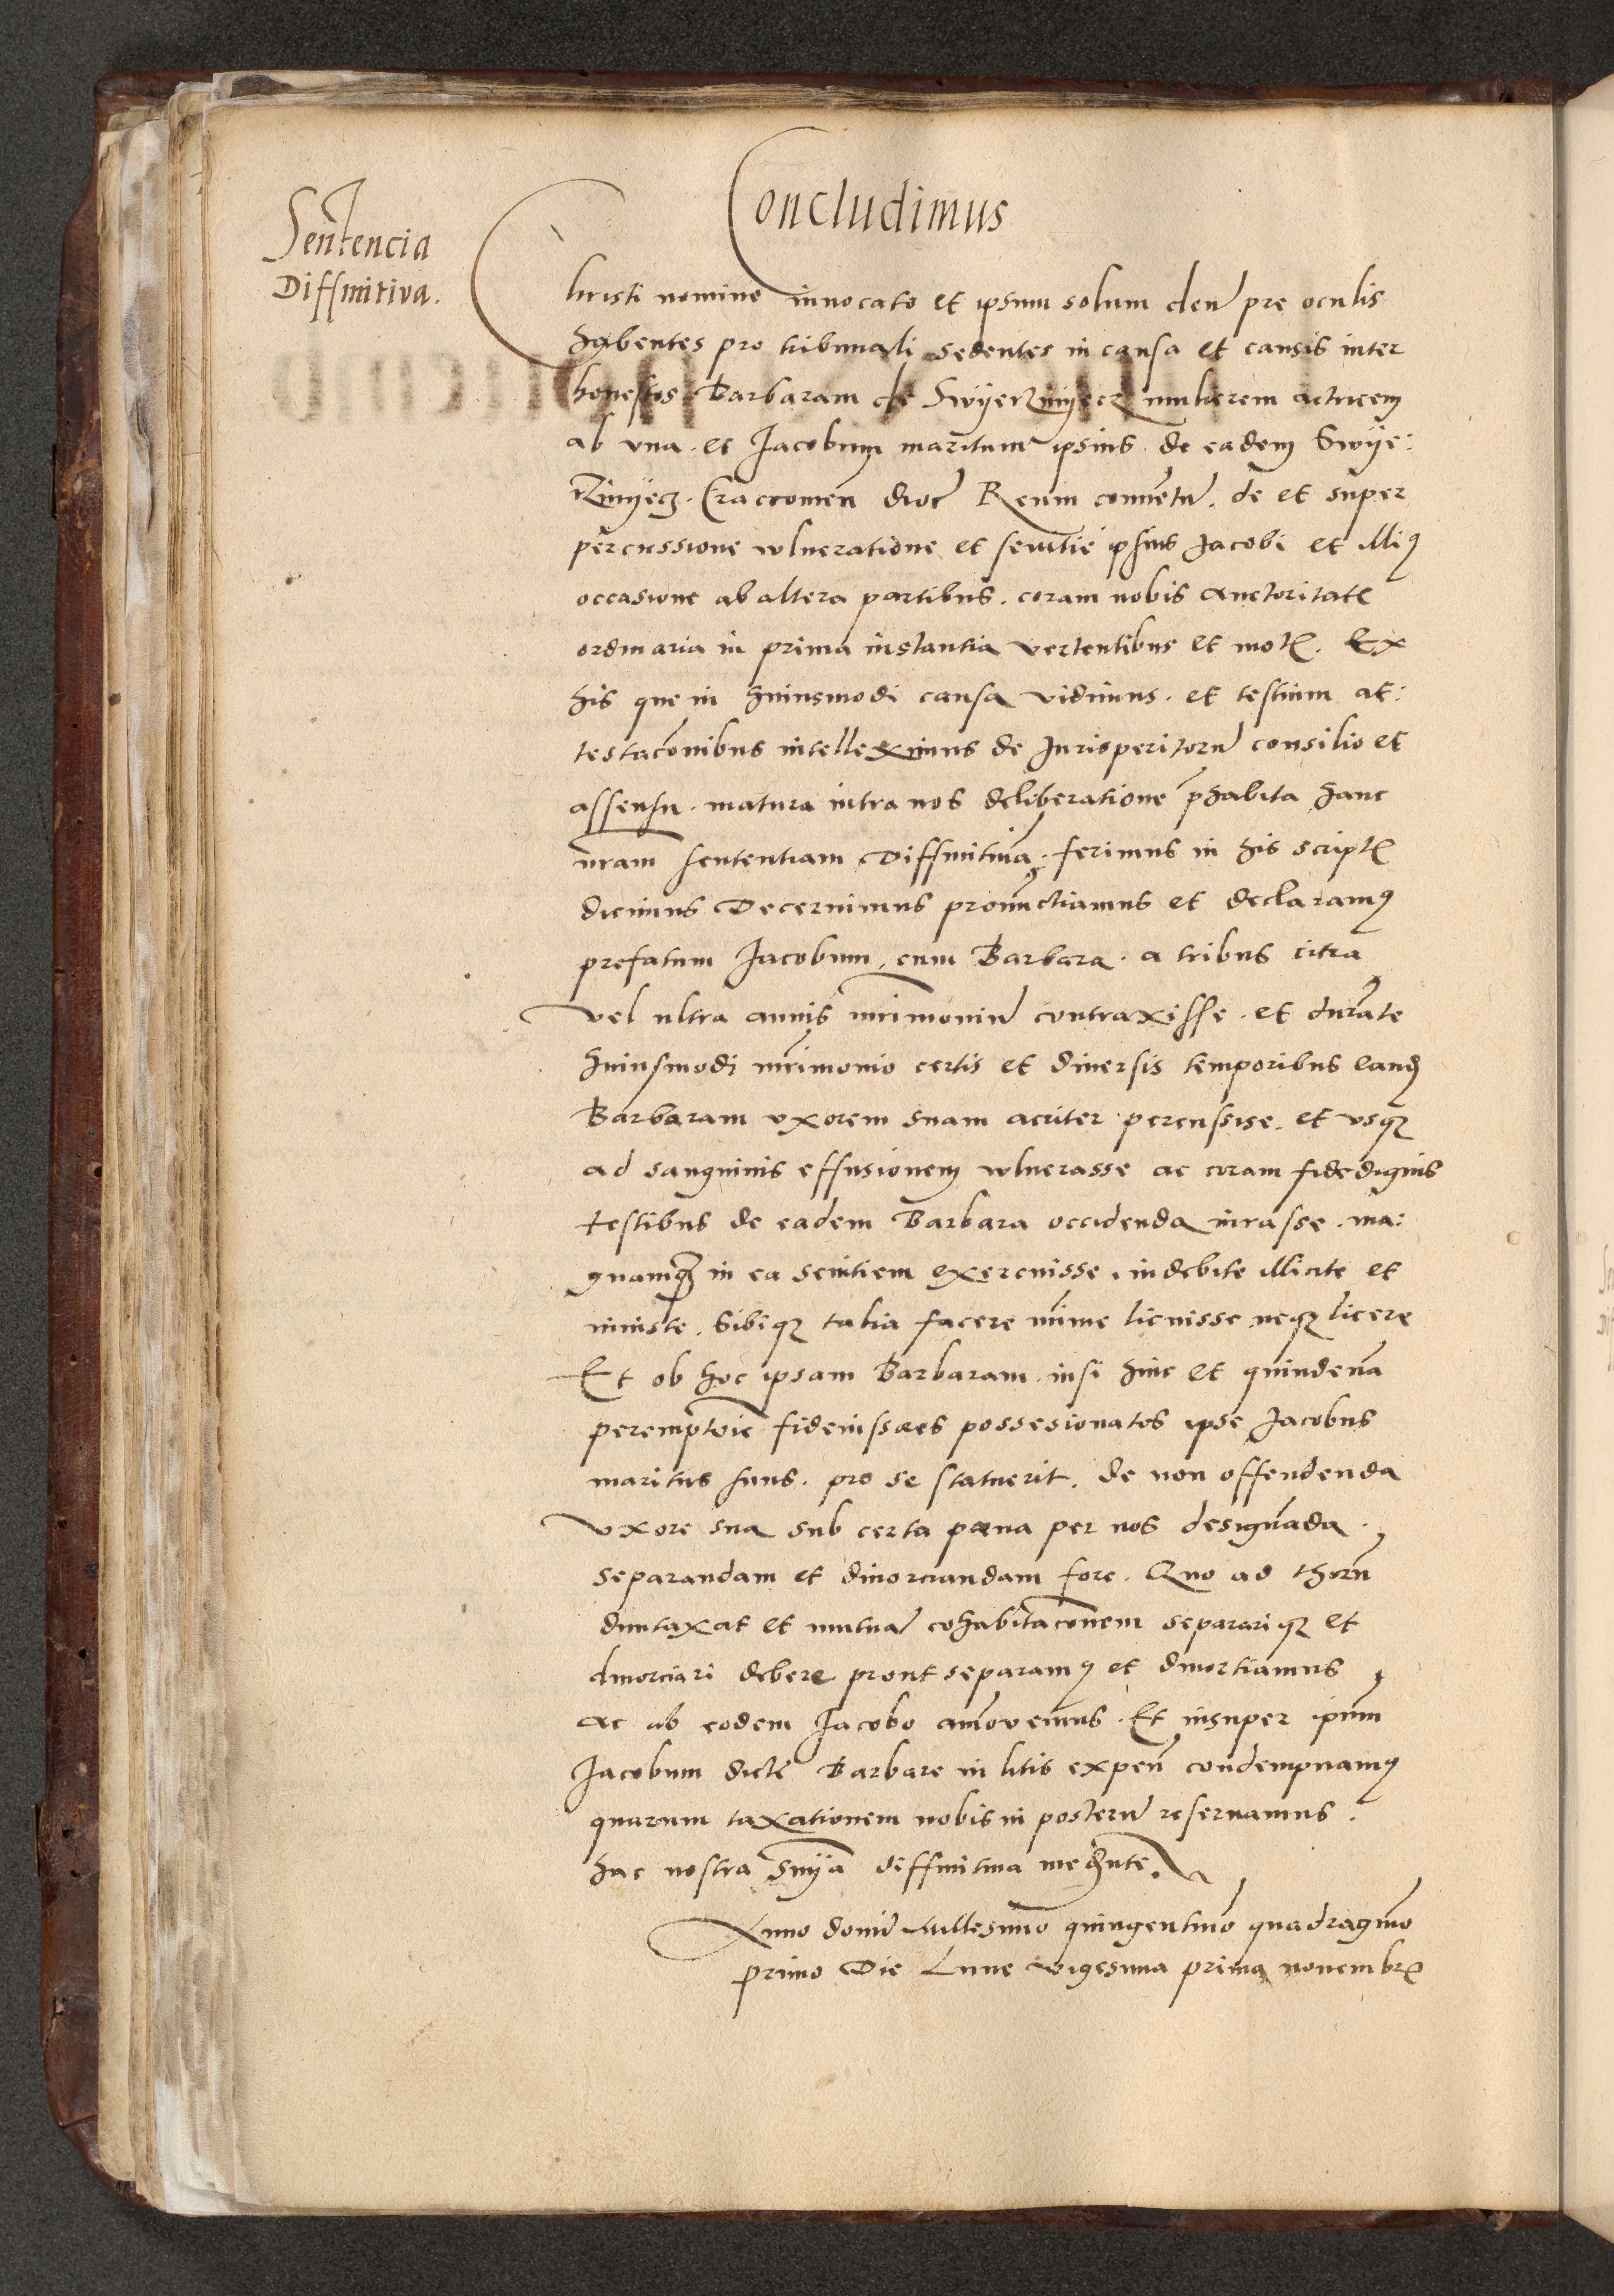 Concludimus
Sentencia
Diffinitiva.
Christi nomine innocato et ipsum solum deu̅ pre oculis
habentes pro tribunali sedentes in causa et causis inter
honestos Barbaram de mulierem actricem
ab vna. et Jacobum maritum ipsius de eadem Swye:
rzinyecz. Craccouien̅ dioc̅ Reum conuentu̅. de et super
percussione wlneratione et seuitie ipsius Jacobi et illiꝰ
occasione ab altera partibus. coram nobis auctoritate
ordinaria in prima instantia vertentibus et motꝭ. Ex
his que in huiusmodi causa vidimus. et testium at:
testac̅onibus intelleximus de Jurisperitoru̅ consilio et
assensu. matura intra nos deliberatione p̅habita hanc
nr̅am sententiam Diffinitiua̅. ferimus in his scriptꝭ
dicimus Decernimus pronu̅ctiamus et declaramꝰ
prefatum Jacobum, cum Barbara. a tribus citra
vel ultra annis mr̅imoniu̅ contraxisse. et dura̅te
huiusmodi mr̅imonio certis et diuersis temporibus eand̅
Barbaram vxorem suam acriter percussise. et vsqꝫ
ad sanguinis effusionem wlnerasse ac coram fidedignis
testibus de eadem Barbara occidenda iurasse. ma:
gnamqꝫ in ea seuitiem exercuisse. indebite illicite et
iniuste. Sibiqꝫ talia facere mi̅ime licuisse neqꝫ licere
Et ob hoc ipsam Barbaram. nisi hinc et quindena̅
perempto̅ie fideiussores possesionatos ipse Jacobus
maritus suus. pro se statuerit. de non offendenda
vxore sua sub certa pœna per nos designa̅da.
separandam et diuorciandam fore. Quo ad thoru̅
duntaxat et mutua̅ cohabitac̅onem separariqꝫ et
diuorciari debere prout separamꝰ et diuortiamus
ac ab eodem Jacobo am̅ouemus. Et insuper ip̅um
Jacobum dicte̅ Barbare in litis expen̅ condempnamꝰ
quarum taxationem nobis in posteru̅ reseruamus.
hac nostra Sn̅ya diffinitiua med̅nte.
Anno domi̅ Millesimo quingentimo̅ quadragimo̅
primo Die Lune vigesima prima nouembrꝭ